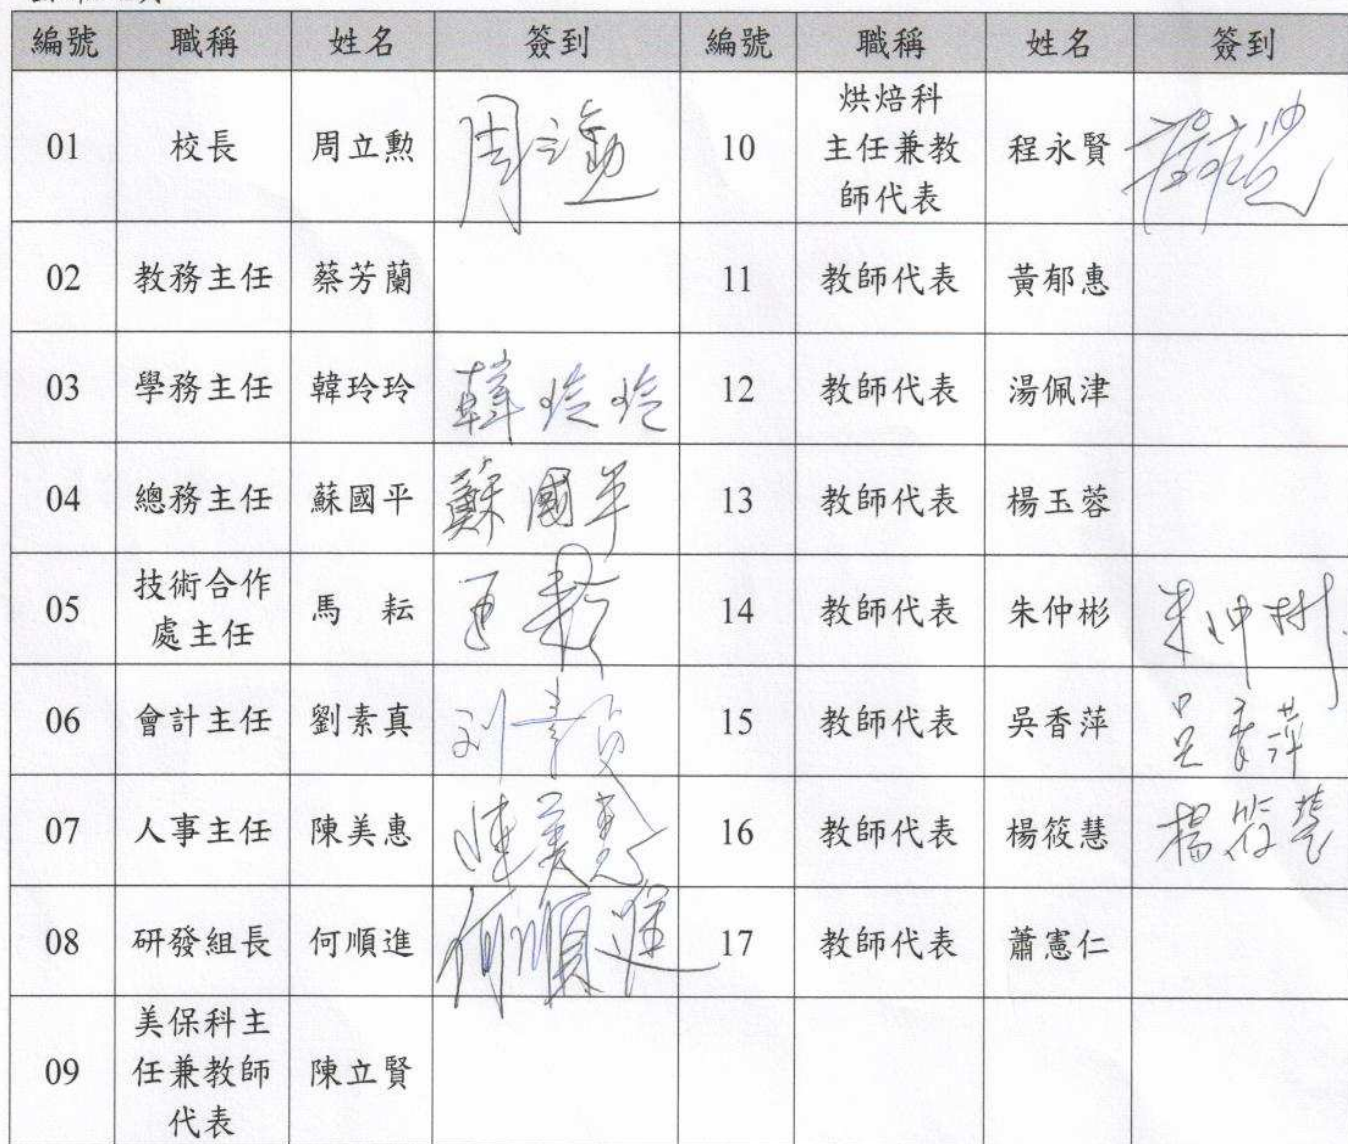 編號 職稱 姓名 簽到 編號 職稱 姓名 簽到
01 校長 周立勳 周立勳 10 烘焙科 主任兼教 師代表 程永賢
02 教務主任 蔡芳蘭 11 教師代表 黃郁惠
03 學務主任 韓玲玲 韓玲玲 12 教師代表 湯佩津
04 總務主任 蘇國平 蘇國平 13 教師代表 楊玉蓉
05 技術合作 處主任 馬 耘 14 教師代表 朱仲彬 朱仲彬
06 會計主任 劉素真 刘素真 15 教師代表 吳香萍 吳香萍
07 人事主任 陳美惠 陳美惠 16 教師代表 楊筱慧 楊筱慧
08 研發組長 何順進 何順進 17 教師代表 蕭憲仁
09 美保科主 任兼教師 代表 陳立賢